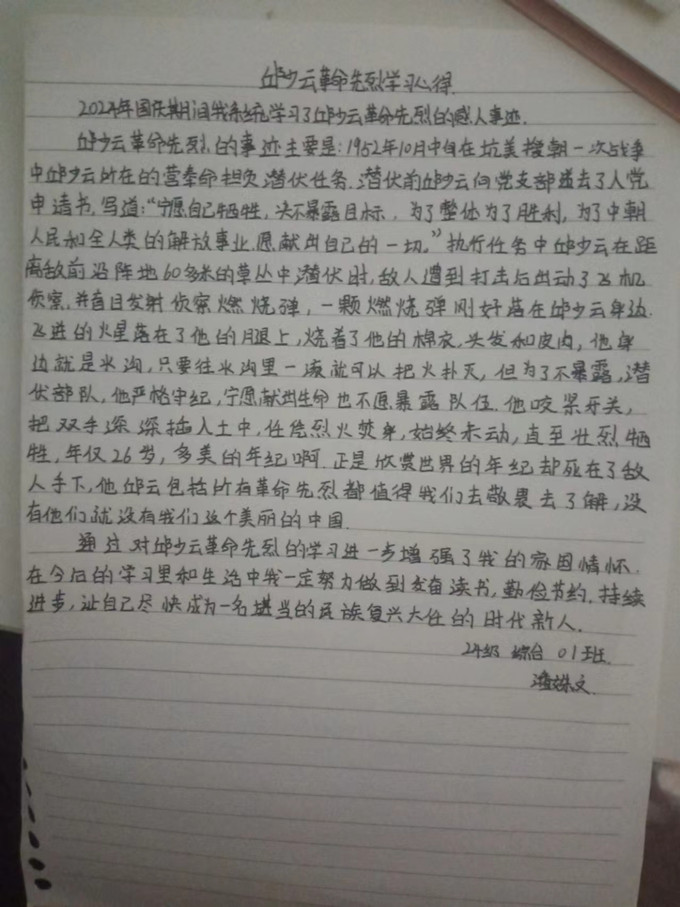 邱少云革命先烈学习心得.
2024年国庆期间我系统学习了邱少云革命先烈的感人事迹.
邱少云革命先烈的事迹主要是:1952年10月中旬在抗美援朝一次战争
中邱少云所在的营奉命担负潜伏任务.潜伏前邱少云向党支部递去了入党
申请书,写道:“宁愿自己牺牲,决不暴露目标,为了整体为了胜利,为了中朝
人民和全人类的解放事业.愿献出自己的一切.”执行任务中邱少云在距
离敌前沿阵地60多米的草丛中潜伏时,敌人遭到打击后出动了飞机
侦察,并盲目发射侦察燃烧弹,一颗燃烧弹刚好落在邱少云身边.
飞迸的火星落在了他的腿上,烧着了他的棉衣,头发和皮肉,他身
边就是水沟,只要往水沟里一滚就可以把火扑灭,但为了不暴露,潜
伏部队,他严格守纪,宁愿献出生命也不愿暴露队伍.他咬紧牙关,
把双手深深插入土中,任凭烈火焚身,始终未动,直至壮烈牺
牲,年仅26岁,多美的年纪啊.正是欣赏世界的年纪却死在了敌
人手下,他邱云包括所有革命先烈都值得我们去敬畏去了解,没
有他们就没有我们这个美丽的中国.
通过对邱少云革命先烈的学习进一步增强了我的家国情怀.
在今后的学习里和生活中我一定努力做到发奋读书,勤俭节约.持续
进步,让自己尽快成为一名堪当的民族复兴大任的时代新人.
24级 综合 01班.